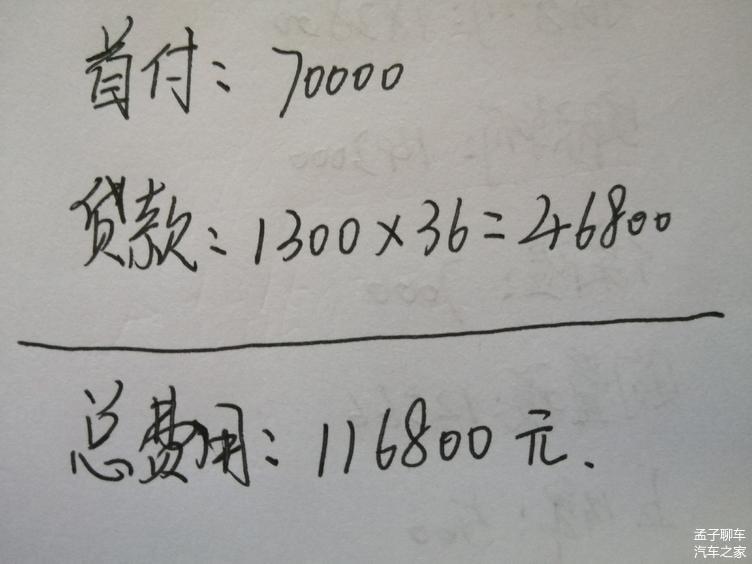 首付：70000
贷款：1300×36=46800
总费用：116800元.
孟子聊车
汽车之家